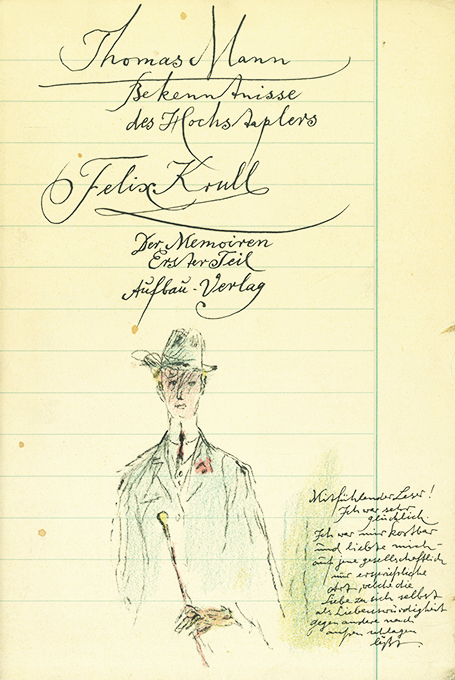 Thomas Mann
Bekenntnisse
des Hochstaplers
Felix Krull
Der Memoiren
Erster Teil
Aufbau-Verlag
Mitfühlender Leser!
Ich war sehr
glücklich
Ich war mir kostbar
und liebte mich –
auf jene gesellschaftlich
nur ersprießliche
Art, welche die
Liebe zu sich selbst
als Liebenswürdigkeit
gegen andere nach
außen schlagen
läßt